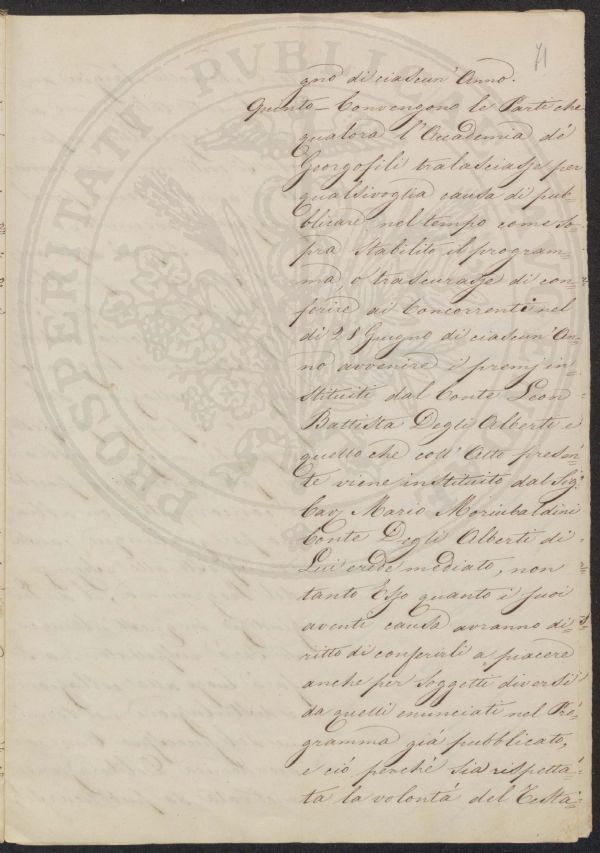 71
gno di ciascun' Anno.
Quinto = Convengono le Parti che
qualora l'Accademia de'
Georgofili tralasciasse per
qualsivoglia causa di pub=
blicare nel tempo come so=
pra stabilito il program=
ma, o trascurasse di con=
ferire ai Concorrenti nel
dì 28 Giugno di ciascun' An=
no avvenire i premj in=
stituiti dal Conte Leon
Battista Degli Alberti e
quello che coll' Atto presen=
te viene instituito dal Sig.
Cav. Mario Moriubaldini
Conte Degli Alberti di
Lui erede mediato, non
tanto Esso quanto i suoi
aventi causa avranno di=
ritto di conferirli a piacere
anche per soggetti diversi
da quelli enunciati nel Pro=
gramma già pubblicato,
e ciò perché sia rispetta=
ta la volontà del Testa=
PROSPERITATI PVBLICAE